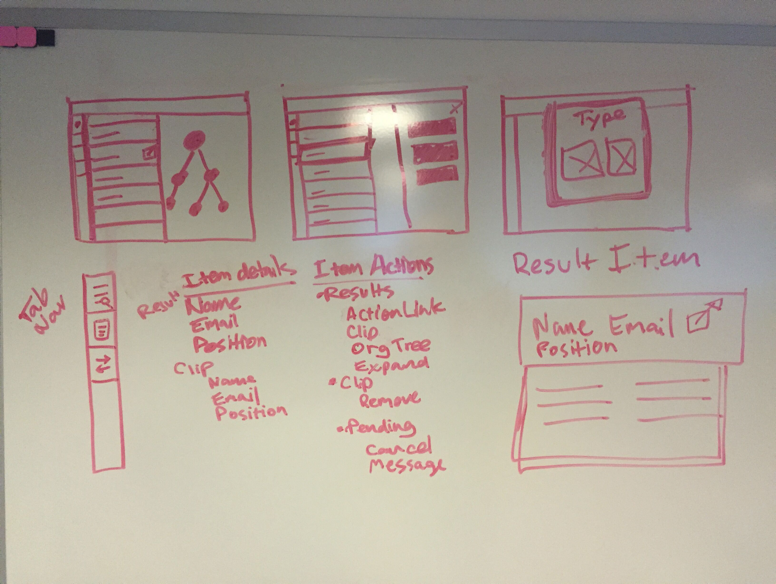 Type
Result Item
Tab
Nav
Item details
Result
Name
Email
Position
Clip
Name
Email
Position
Item Actions
Results
ActionLink
Clip
OrgTree
Expand
Clip
Remove
Pending
Cancel
Message
Name Email
Position